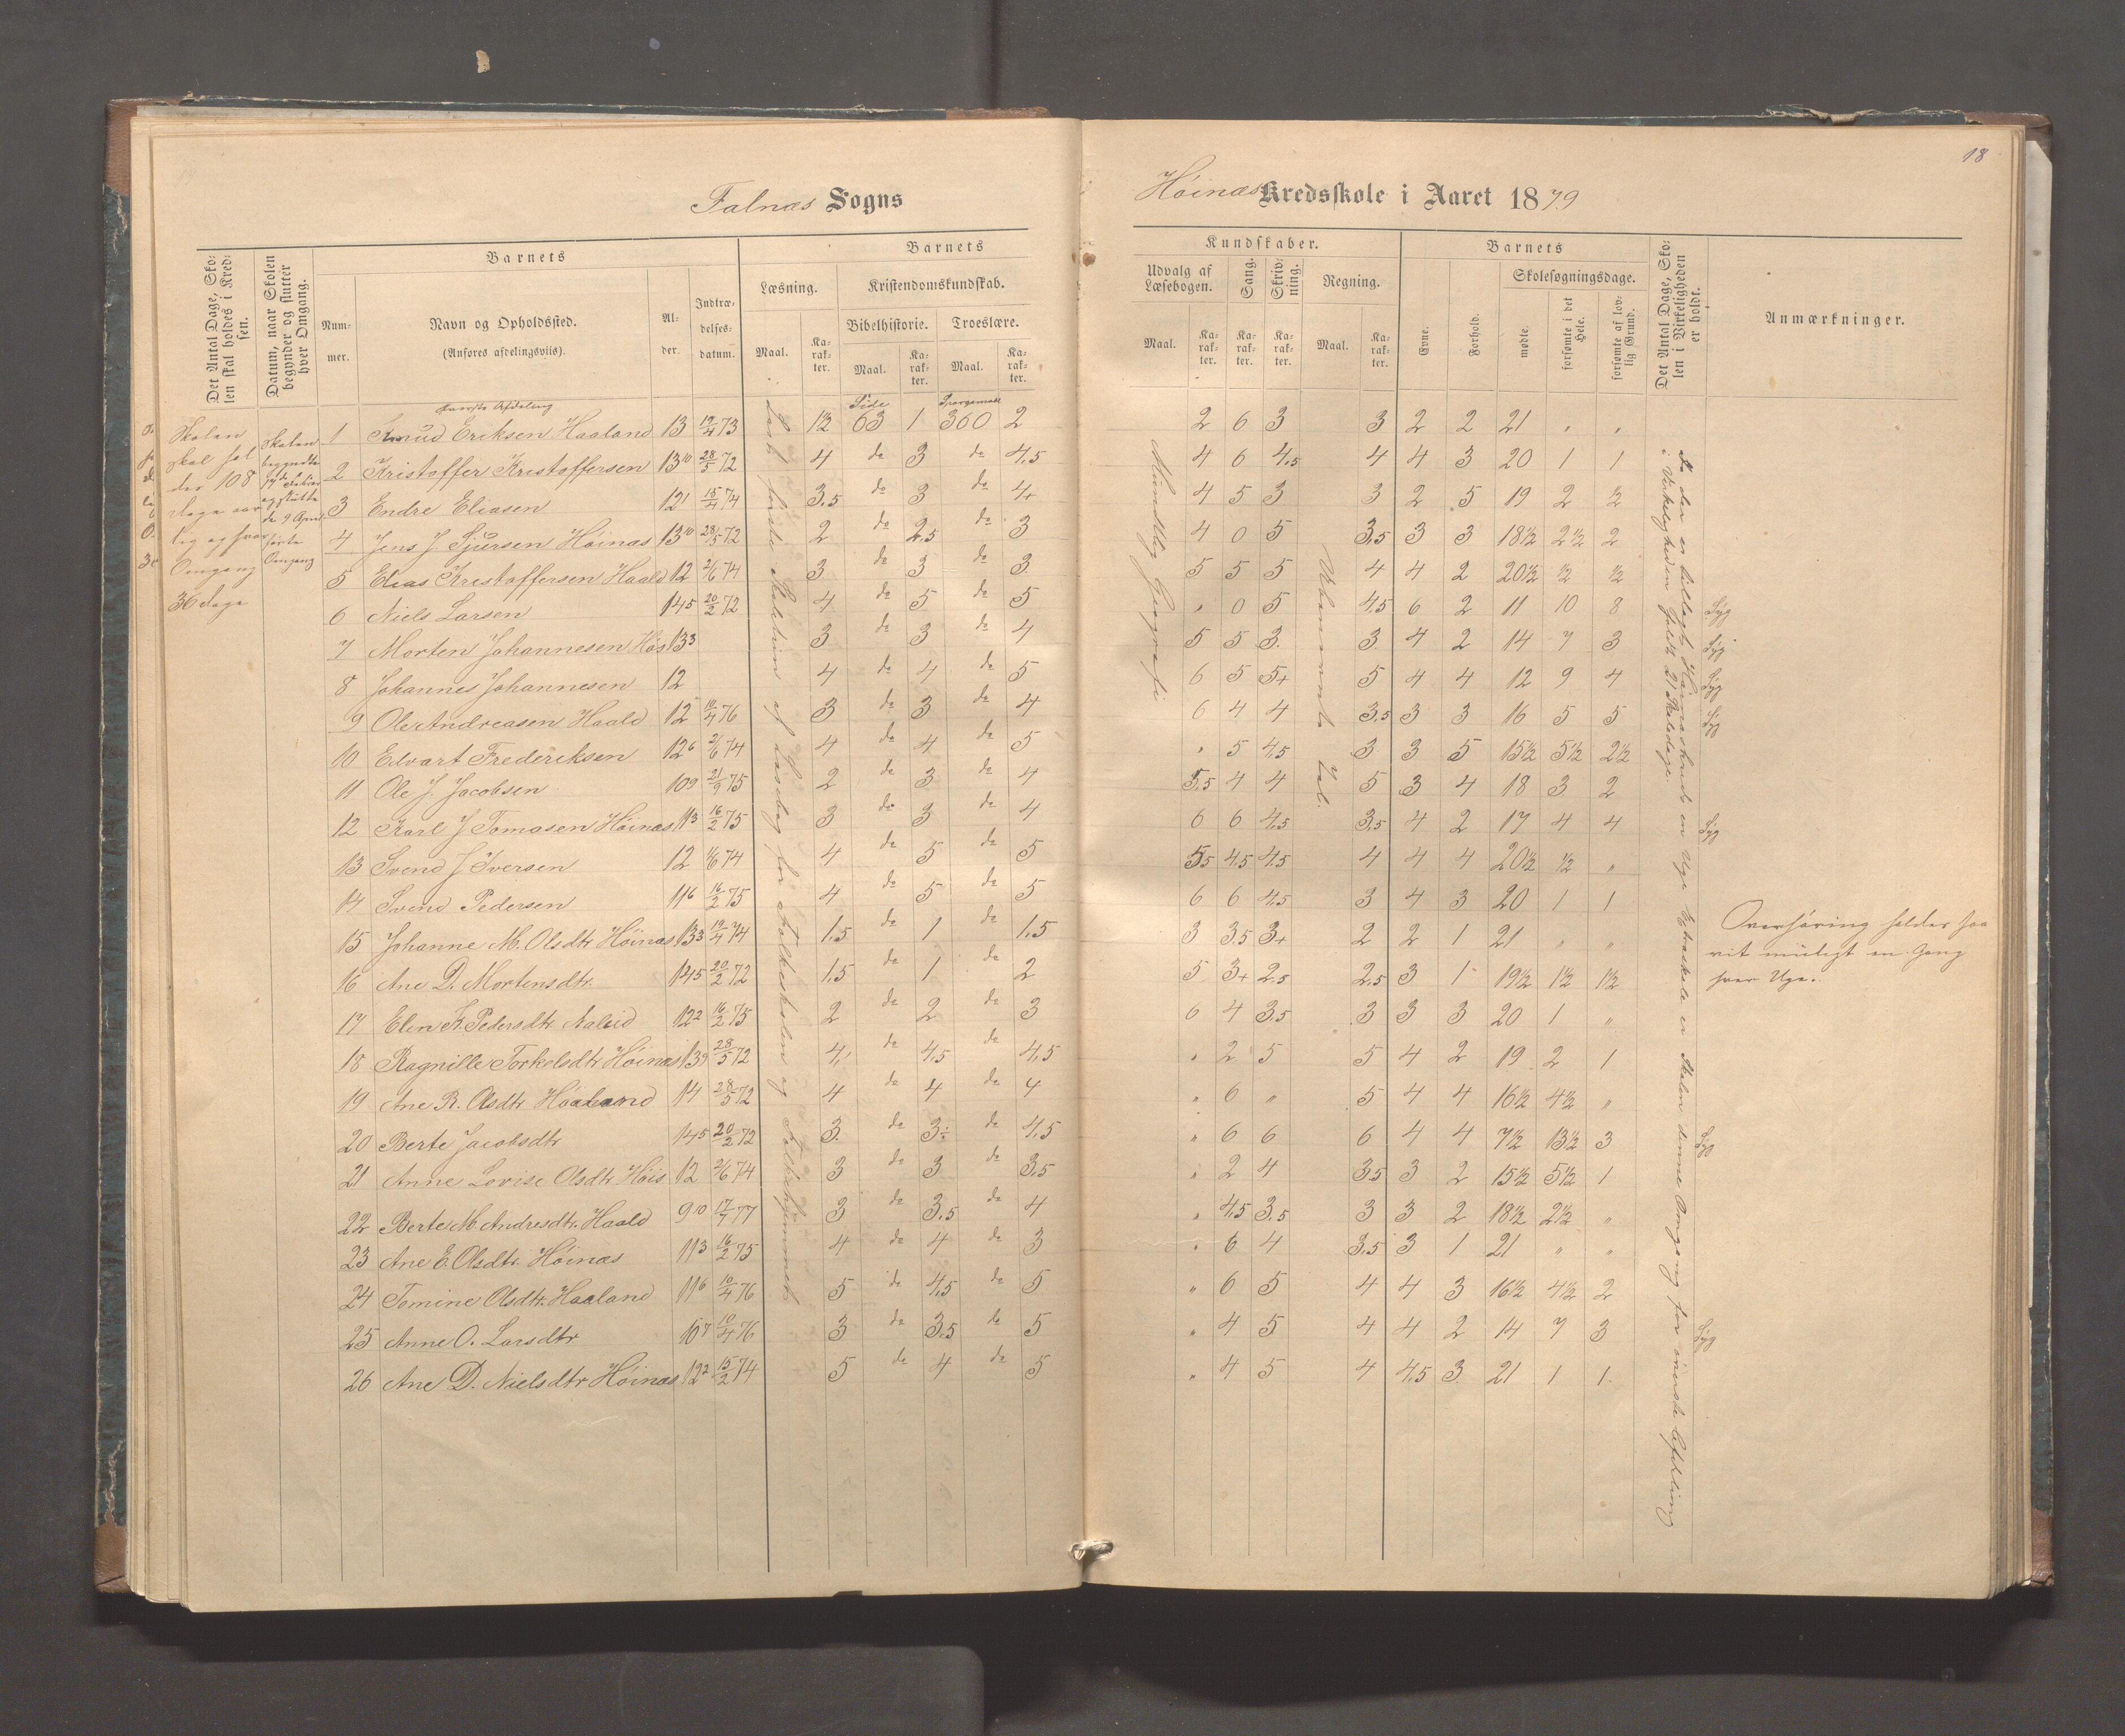 18
Falnæs Sogns
Høinæs Kredsskole i Aaret 1879
Det Antal Dage, Skolen skal holdes i Kredsen.
Datum, naar Skolen begynder og slutter hver Omgang.
Barnets
Nummer.
Navn og Opholdssted.
(Anføres afdelingsviis).
Alder.
Indtrædelsesdatum.
Barnets
Læsning.
Maal.
Karakter.
Kristendomskundskab.
Bibelhistorie.
Maal.
Karakter.
Troeslære.
Maal.
Karakter.
Kundskaber.
Udvalg af Læsebogen.
Maal.
Karakter.
Sang.
Karakter.
Skrivning.
Karakter.
Regning.
Maal.
Karakter.
Barnets
Evne.
Forhold.
Skolesøgningsdage.
mødte.
forsømte i det Hele.
forsømte af lovlig Grund.
Det Antal Dage, Skolen i Virkeligheden er holdt.
Anmærkninger.
Skolen
skal hol
des 108
dage aar
lig og hver
Omgang
36 dage
Skolen
begyndte
og slutte
de 9 April
første
Omgang
Øverste Afdeling
Side
Spørgsmaal
1 Knud Eriksen Haaland 13 19/4 73 1½ 63 1 360 2 2 6 3 3 2 2 21 " "
2 Kristoffer Kristoffersen 13 10 28/5 72 4 do 3 do 4,5 4 6 4,5 4 4 3 20 1 1
3 Endre Eliasen 12 1 15/4 74 3,5 do 3 do 4+ 4 5 3 3 2 5 19 2 ½
4 Jens J. Sjursen Høinæs 13 10 28/5 72 2 do 2,5 do 3 4 0 5 3,5 3 3 18½ 2½ 2
5 Elias Kristoffersen Haald 12 2/6 74 3 do 3 do 3 5 5 5 4 4 2 20½ ½ ½
6 Niels Larsen 14 5 20/2 72 4 do 5 do 5 " 0 5 4,5 6 2 11 10 8 Syg
7 Morten Johannesen Høs 13 3 3 do 3 do 4 5 5 3 3 4 2 14 7 3 Syg
8 Johannes Johannesen 12 4 do 4 do 5 6 5 5+ 5 4 4 12 9 4 Syg
9 Ole Andreasen Haald 12 10/4 76 3 do 3 do 4 6 4 4 3,5 3 3 16 5 5 Syg
10 Edvart Frederiksen 12 6 2/6 74 4 do 4 do 5 " 5 4,5 3 3 5 15½ 5½ 2½
11 Ole J. Jacobsen 10 9 21/9 75 2 do 3 do 4 5,5 4 4 5 3 4 18 3 2
12 Karl J Tomasen Høinæs 11 3 16/2 75 3 do 3 do 4 6 6 4,5 3,5 4 2 17 4 4 Syg
13 Svend J Iversen 12 2/6 74 4 do 5 do 5 5,5 4,5 4,5 4 4 4 20½ ½ "
14 Svend Pedersen 11 6 16/2 75 4 do 5 do 5 6 6 4,5 3 4 3 20 1 1
15 Johanne M. Olsdtr Høinæs 13 3 19/4 74 1,5 do 1 do 1,5 3 3,5 3+ 2 2 1 21 " "
16 Ane D. Mortensdtr. 14 5 20/2 72 1,5 do 1 do 2 5 3+ 2,5 2,5 3 1 19½ 1½ 1½
17 Elen K. Pedersdtr 12 2 16/2 75 2 do 2 do 3 6 4 3,5 3 3 3 20 1 "
18 Ragnille Torkelsdtr Høinæs 13 9 28/5 72 4, do 4,5 do 4,5 " 2 5 5 4 2 19 2 1
19 Ane R. Olsdtr Haaland 14 28/5 72 4 do 4 do 4 " 6 " 5 4 4 16½ 4½ "
20 Berte Jacobsdtr 14 5 20/2 72 3 do 3÷ do 4,5 " 6 6 6 4 4 7½ 13½ 3 Syg
21 Anne Lovise Olsdtr Høis 12 2/6 74 3 do 3 do 3,5 " 2 4 3,5 3 2 15½ 5½ 1
22 Berte M Andresdtr. Haald 9 10 17/7 77 3 do 3,5 do 4 " 4,5 3,5 3 3 2 18½ 2½ "
23 Ane E. Olsdtr. Høinæs 11 3 16/2 75 4 do 4 do 3 " 6 4 3,5 3 1 21 " "
24 Tomine Olsdtr. Haaland 11 6 10/4 76 5 do 4,5 do 5 " 6 5 4 4 3 16½ 4½ 2
25 Anne O. Larsdtr 10 7 10/4 76 3 do 3,5 do 5 " 4 5 4 4 2 14 7 3 Syg
26 Ane D. Nielsdtr Høinæs 12 2 15/2 74 5 do 4 do 5 " 4 5 4 4,5 3 21 1 1
Læst første Skoletrin af Læsebog for Folkeskolen og Folkehjemmet
Mundtlig Geografi
Ubenævnte Tal.
Da der er tillagt Kredsen en Uge Extraskole er Skolen denne Omgang for øverste Afdeling
i Virkeligheden holdt 21 Skoledage.
Overhøring holdes saa
vit muligt en Gang
hver Uge.